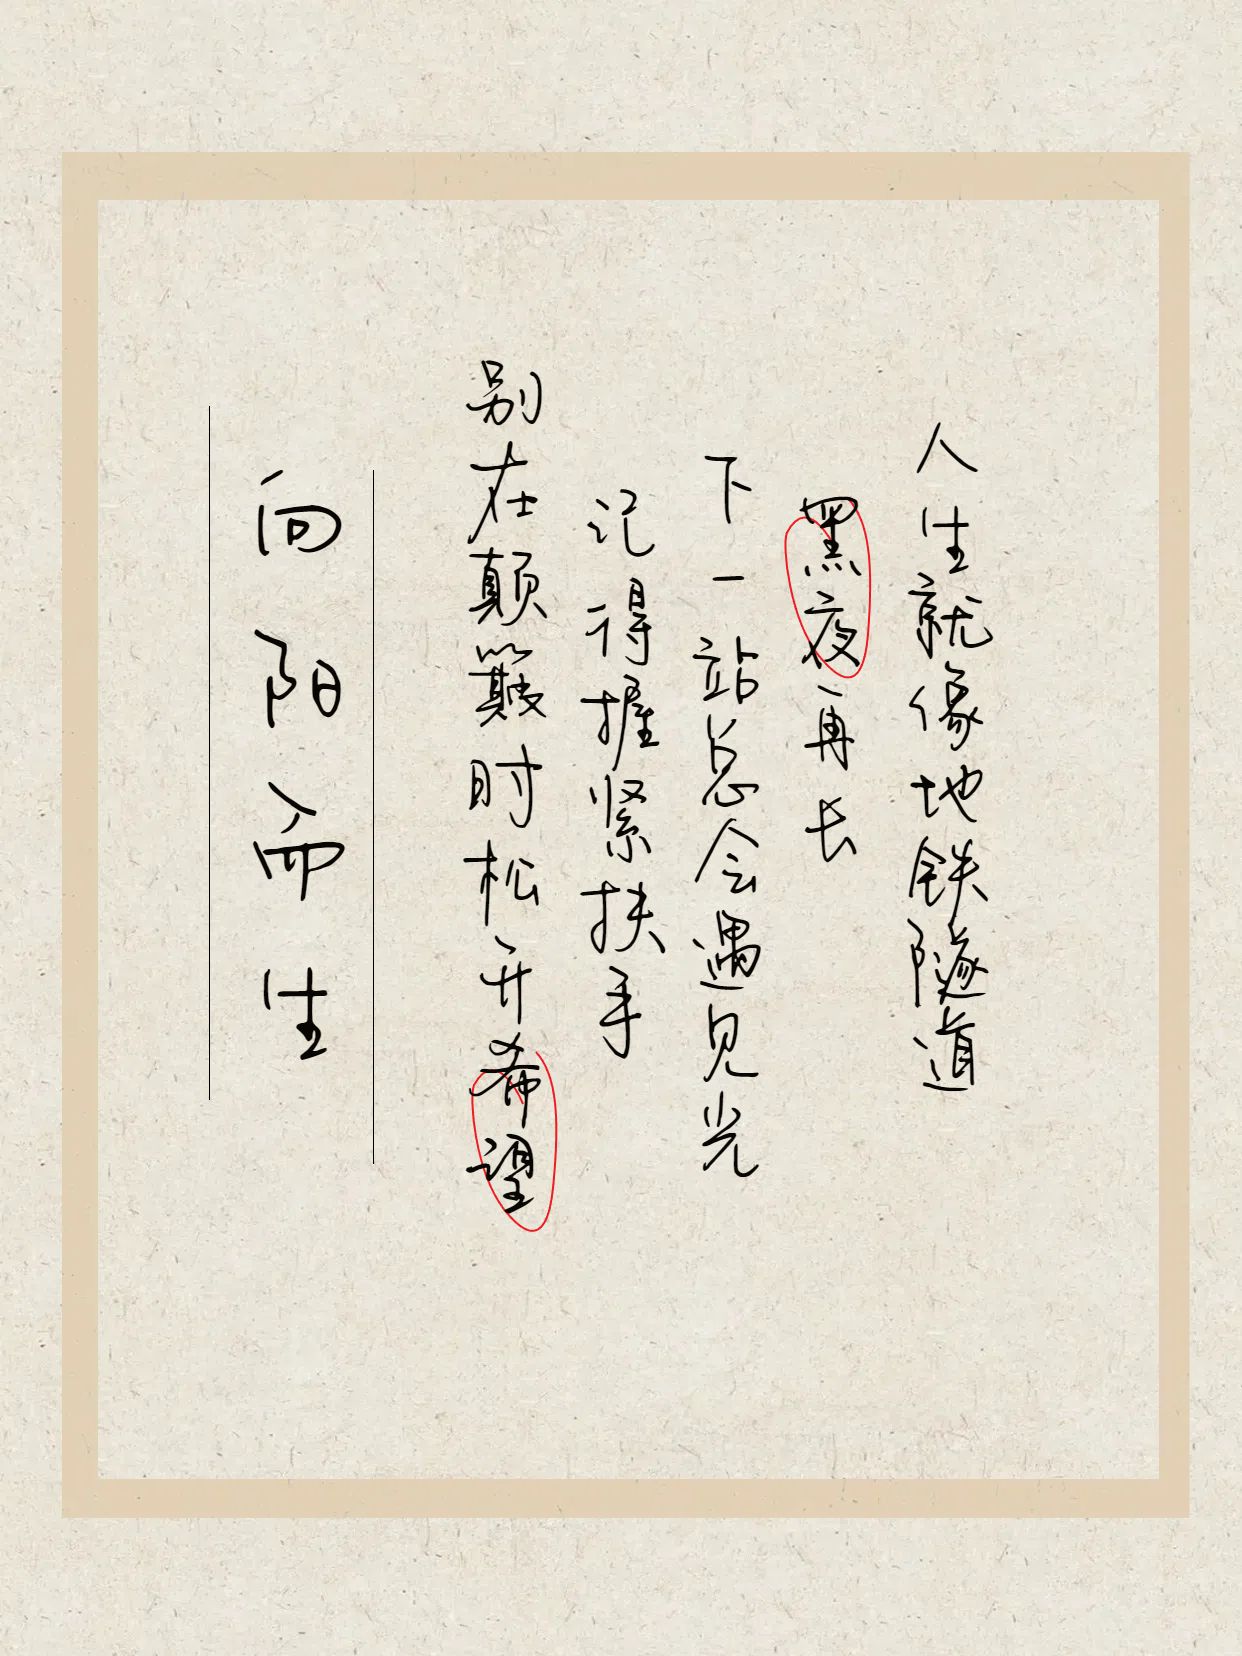 人生就像地铁隧道
黑夜再长
下一站总会遇见光
记得握紧扶手
别在颠簸时松开希望
向阳而生